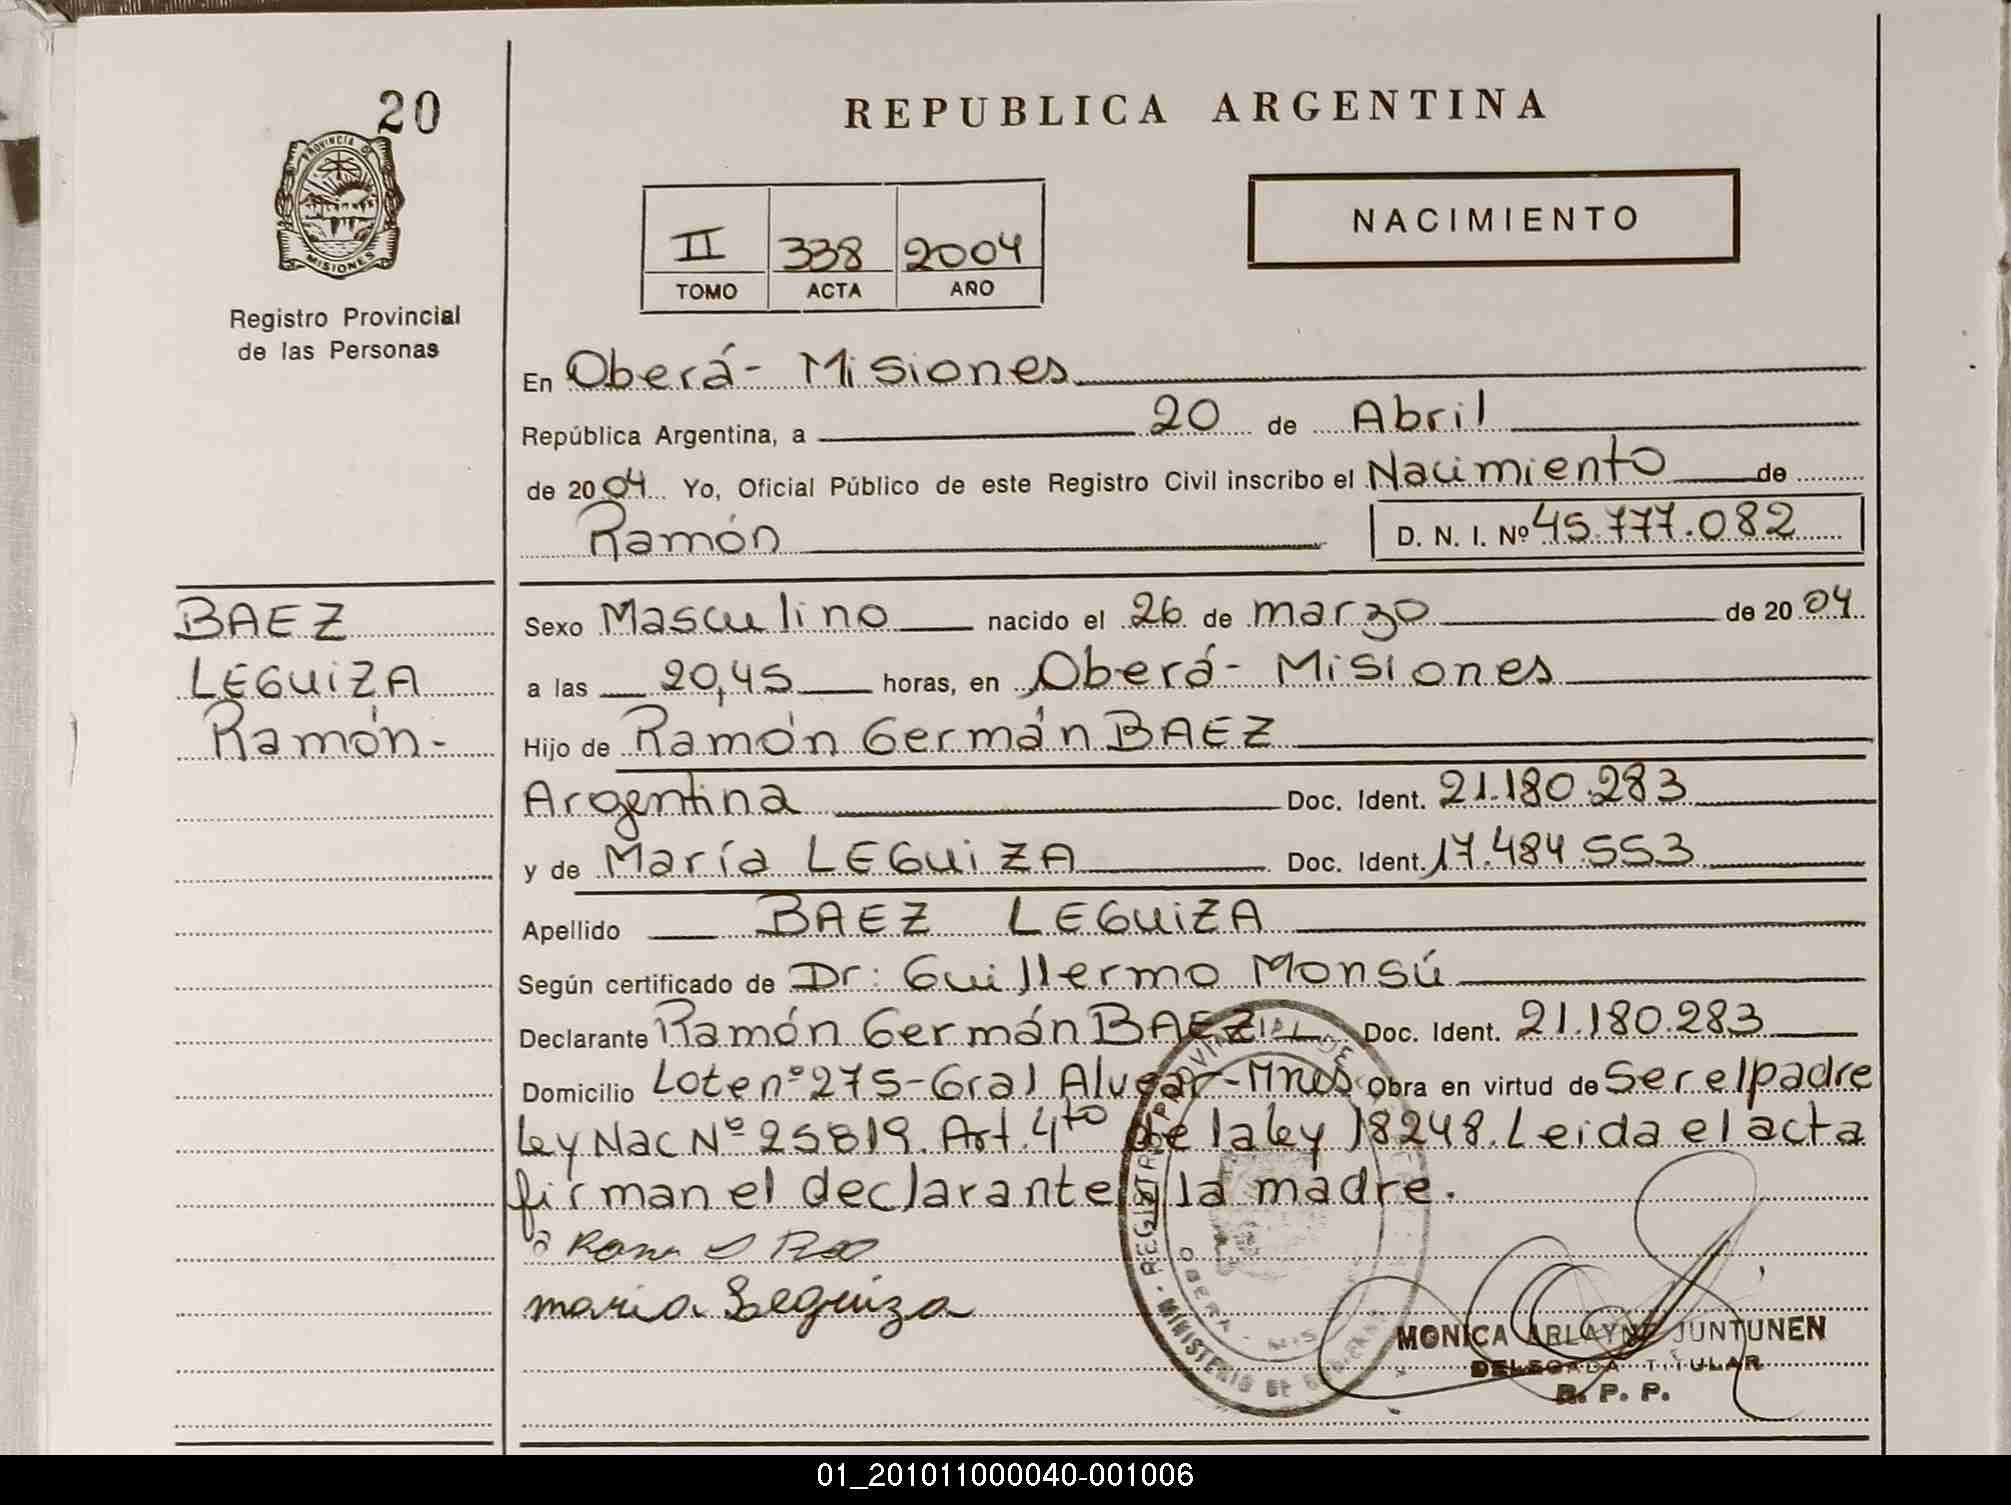 20
PROVINCIA DE
MISIONES
Registro Provincial
de las Personas
REPUBLICA ARGENTINA
II 338 2004
TOMO ACTA AÑO
NACIMIENTO
En Oberá - Misiones
República Argentina, a 20 de Abril
de 2004 Yo, Oficial Público de este Registro Civil inscribo el Nacimiento de
Ramón D. N. I. Nº 45.777.082
BAEZ
LEGUiZA
Ramón-
Sexo Masculino nacido el 26 de marzo de 2004
a las 20,45 horas, en Oberá - Misiones
Hijo de Ramón Germán BAEZ
Argentina Doc. Ident. 21.180.283
y de María LEGUiZA Doc. Ident. 17.484.553
Apellido BAEZ LEGUiZA
Según certificado de Dr: Guillermo Monsú
Declarante Ramón Germán BAEZ Doc. Ident. 21.180.283
Domicilio Lote nº 275 - Gral Alvear - Mnes Obra en virtud de Ser el padre
Ley Nac Nº 25819. Art. 4to de la ley 18248. Leida el acta
firman el declarante y la madre.
maria Leguiza
REGISTRO PROVINCIAL DE
OBERA - MIS
MINISTERIO DE
MONICA ARLAYNE JUNTUNEN
DELEGADA TITULAR
R. P. P.
01_201011000040-001006